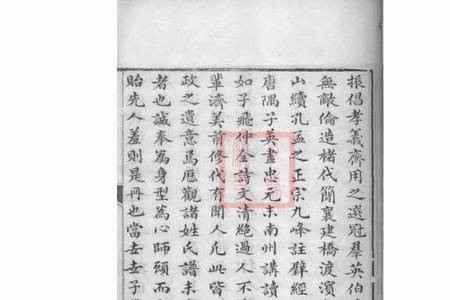 振倡孝義齋用之選冠羣英伯
無敵倫造楮代簡襄建橋渡濱
山續孔孟之正宗九峰註壁經
唐隅子英盡忠元末南州講讀
如子飛仲全詩文清絶過人不
輩濟美前修代有聞人凡此皆
政之遺意爲歷觀諸姓氏譜未
者也誠奉爲身型爲心師頌而
貽先人羞則是冊也當世世子